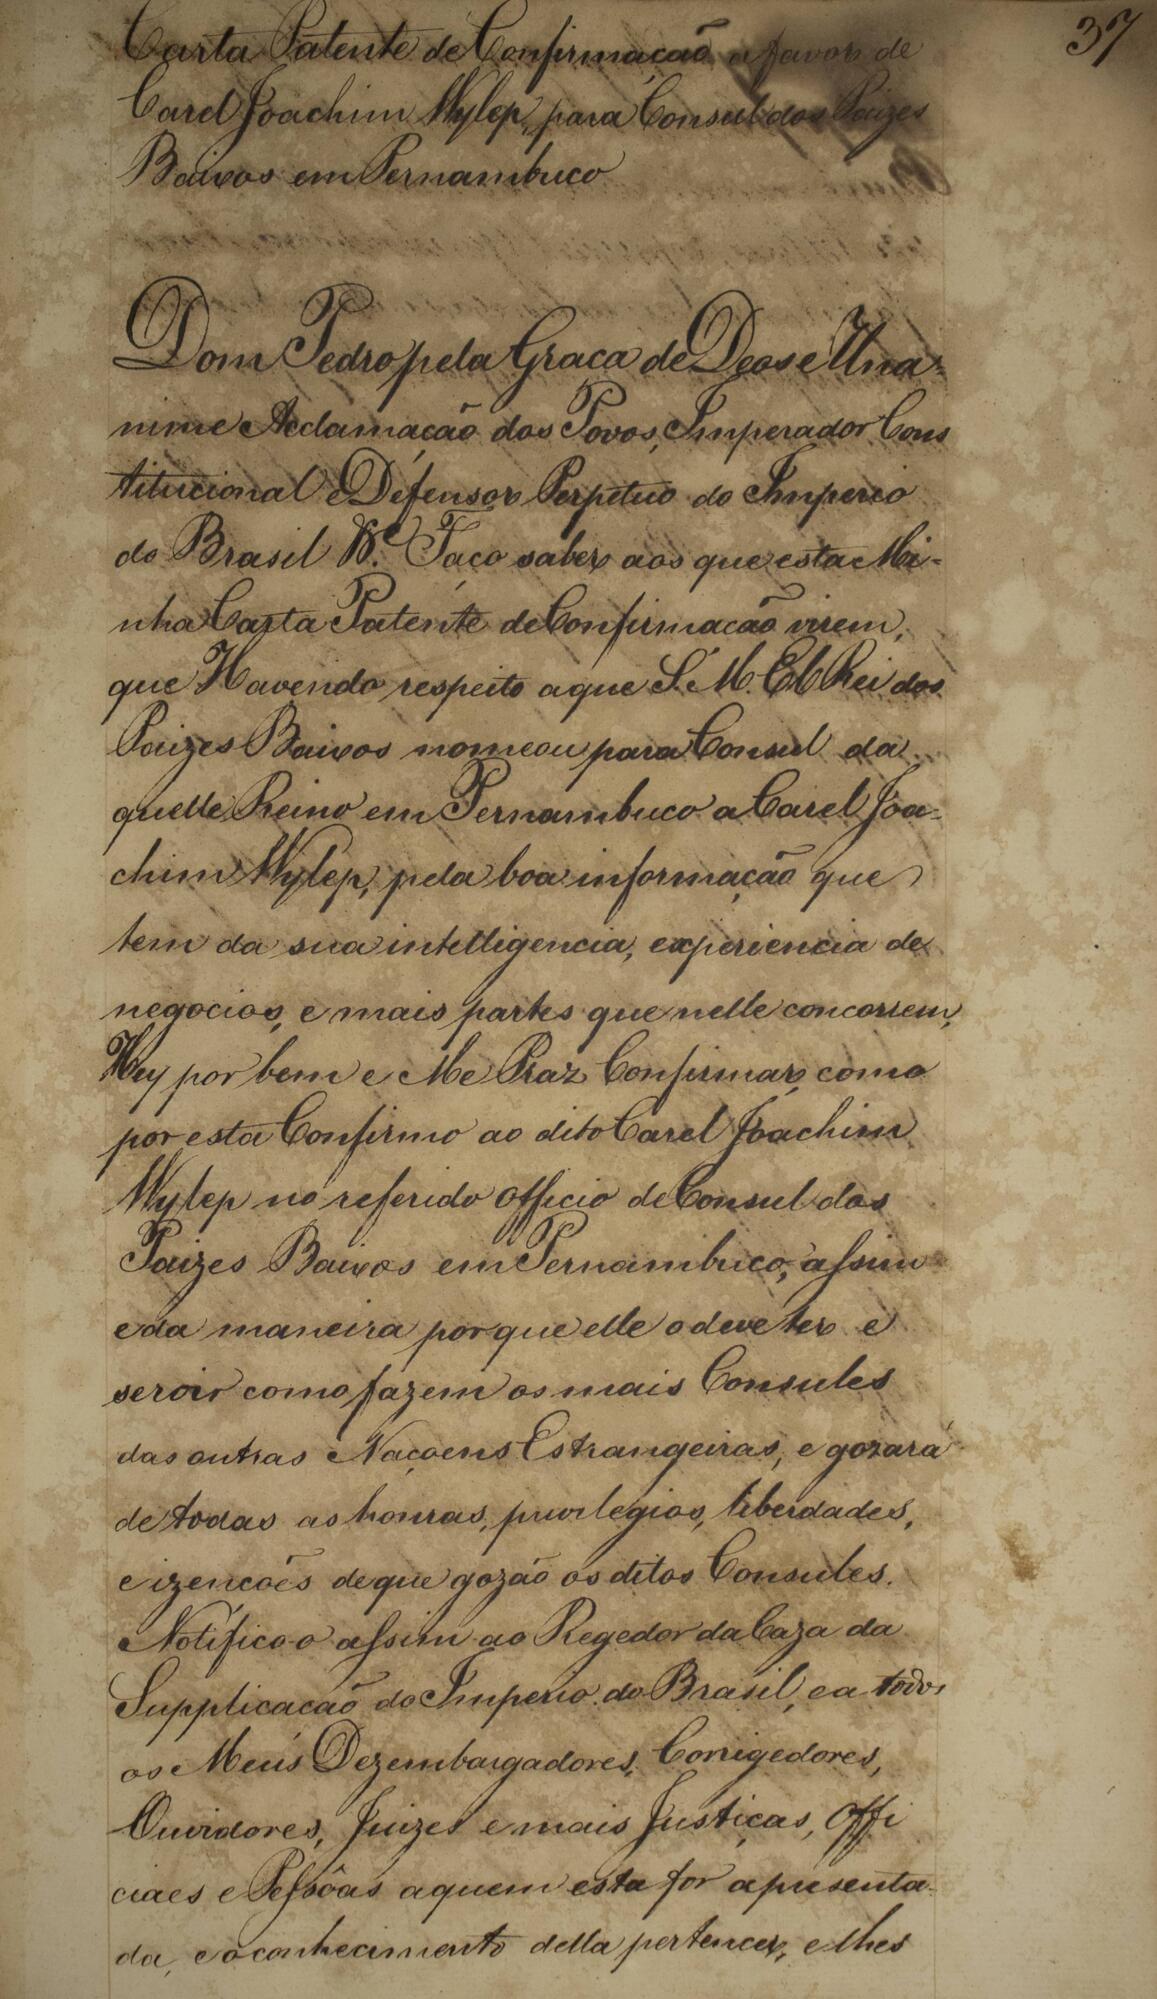 37
Carta Patente de Confirmação a favor de
Carel Joachim Wylep, para Consul dos Paizes
Baixos em Pernambuco
Dom Pedro pela Graca de Deos e Una-
nime Acclamação dos Povos, Imperador Cons
titucional e Defensor Perpetuo do Imperio
do Brasil &.ª Faco saber aos que esta Mi-
nha Carta Patente de Confirmacão virem,
que Havendo respeito aque S. M. El Rei dos
Paizes Baixos nomeou para Consul da
quelle Reino em Pernambuco a Carel Joa-
chim Wylep, pela boa informação que
tem da sua intelligencia, experiencia de
negocios, e mais partes que nelle concorrem,
Hey por bem e Me Praz Confirmar, como
por esta Confirmo ao dito Carel Joachim
Wylep no referido officio de Consul dos
Paizes Baixos em Pernambuco, assim
e da maneira porque elle o deve ter e
servir como fazem os mais Consules
das outras Naçoens Estrangeiras, e gozará
de todas as honras, privilegios, liberdades,
e izencoẽs de que gozão os ditos Consules.
Notifico-o assim ao Regedor da Caza da
Supplicacaõ do Imperio do Brasil, e a todos
os Meus Dezembargadores, Corrigedores,
Ouvidores, Juizes e mais Justiças, Offi
ciaes e Pessôas aquem esta for apresenta-
da, e o conhecimento della pertencer, e lhes